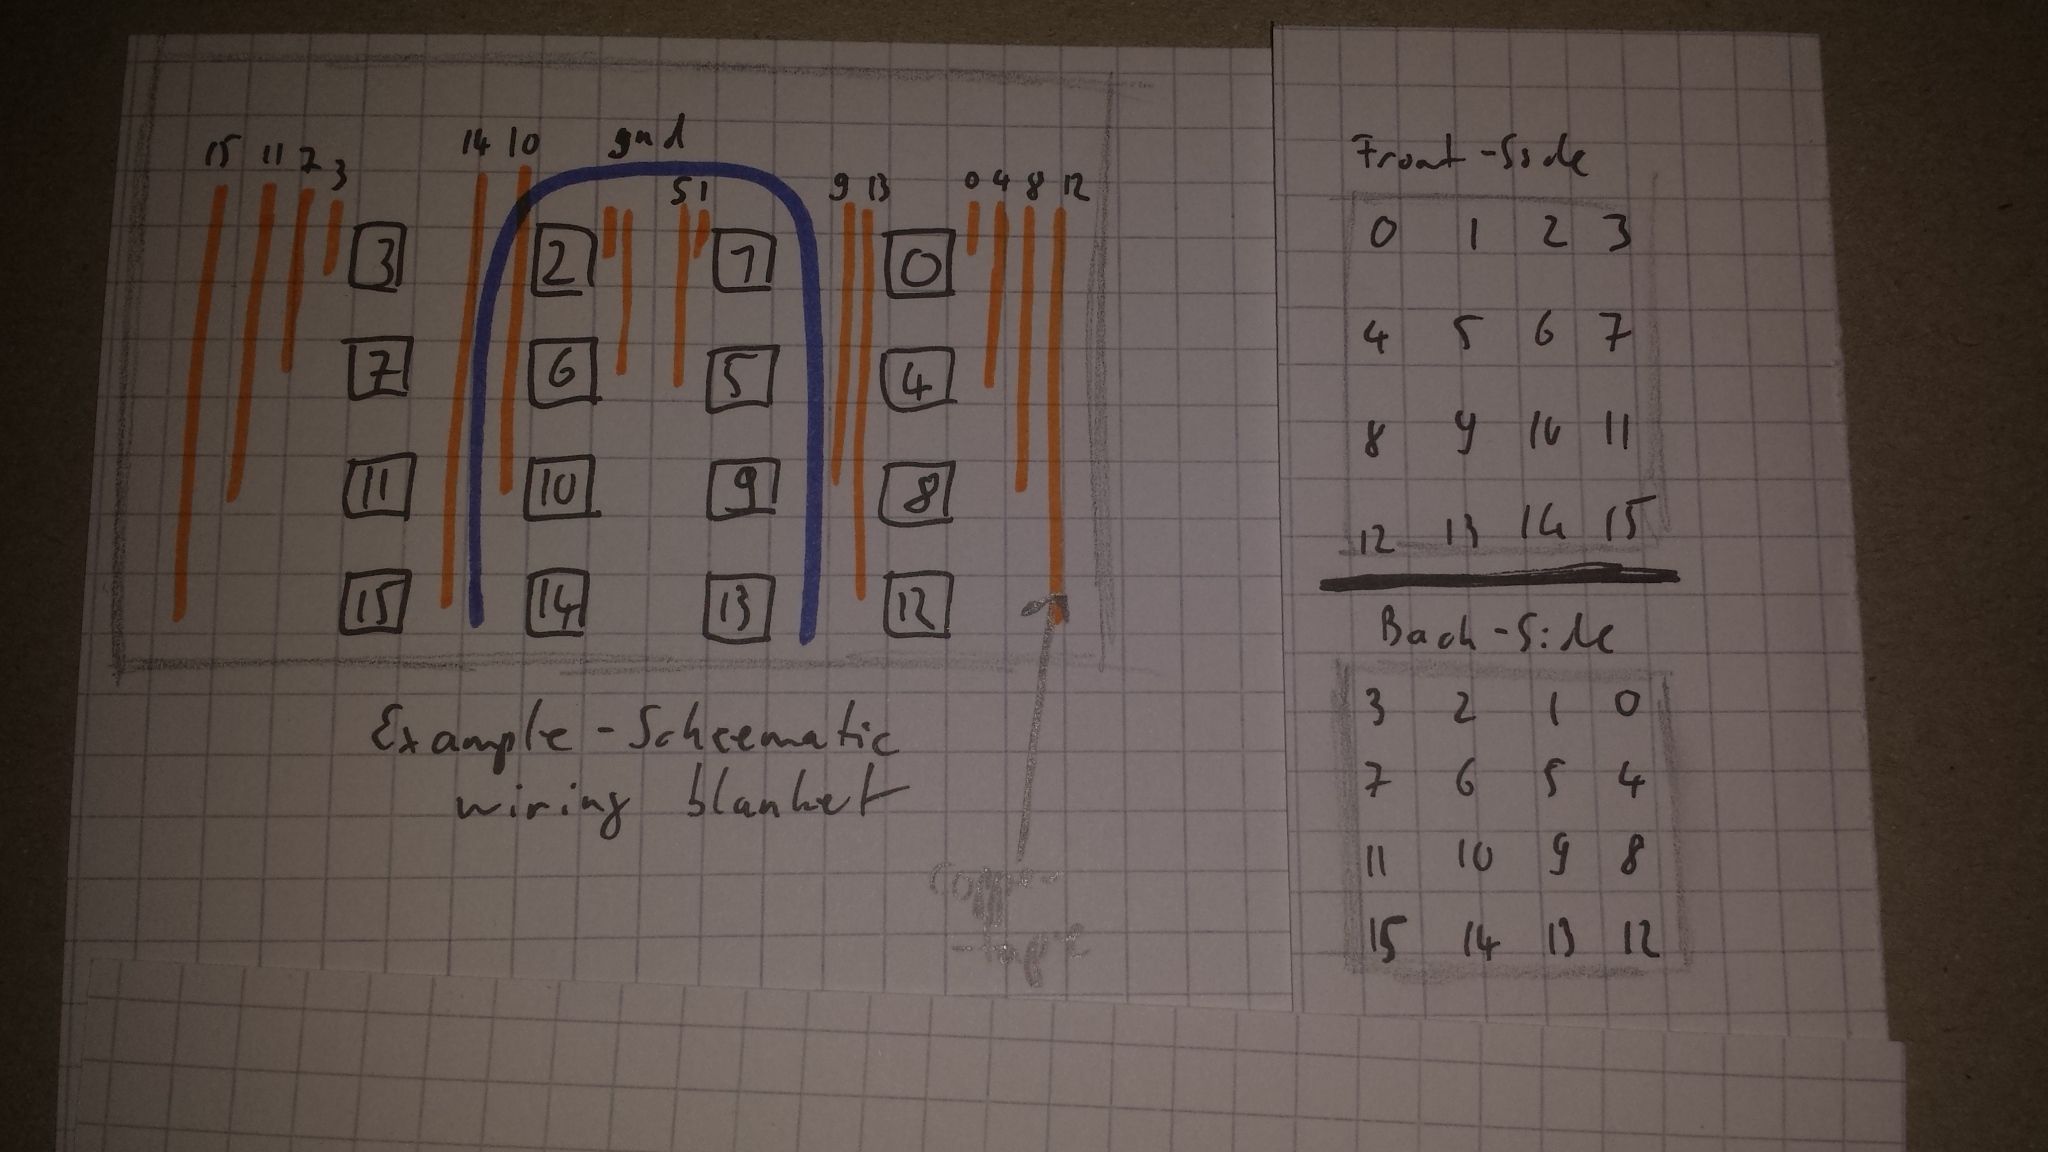 15 11 7 3 14 10 gnd 5 1 9 13 0 4 8 12
3 2 1 0
7 6 5 4
11 10 9 8
15 14 13 12
Example-Scheematic
wiring blanket
copper
-tape
Front-Side
0 1 2 3
4 5 6 7
8 9 10 11
12 13 14 15
Back-Side
3 2 1 0
7 6 5 4
11 10 9 8
15 14 13 12